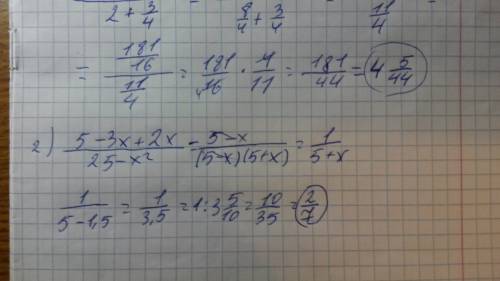 2 + 3/4   8/4 + 3/4   11/4
= (181/16)/(11/4) = 181/16 · 4/11 = 181/44 = 4 5/44
2) (5-3x+2x)/(25-x²) = (5-x)/((5-x)(5+x)) = 1/(5+x)
1/(5-1,5) = 1/3,5 = 1:3 5/10 = 10/35 = 2/7